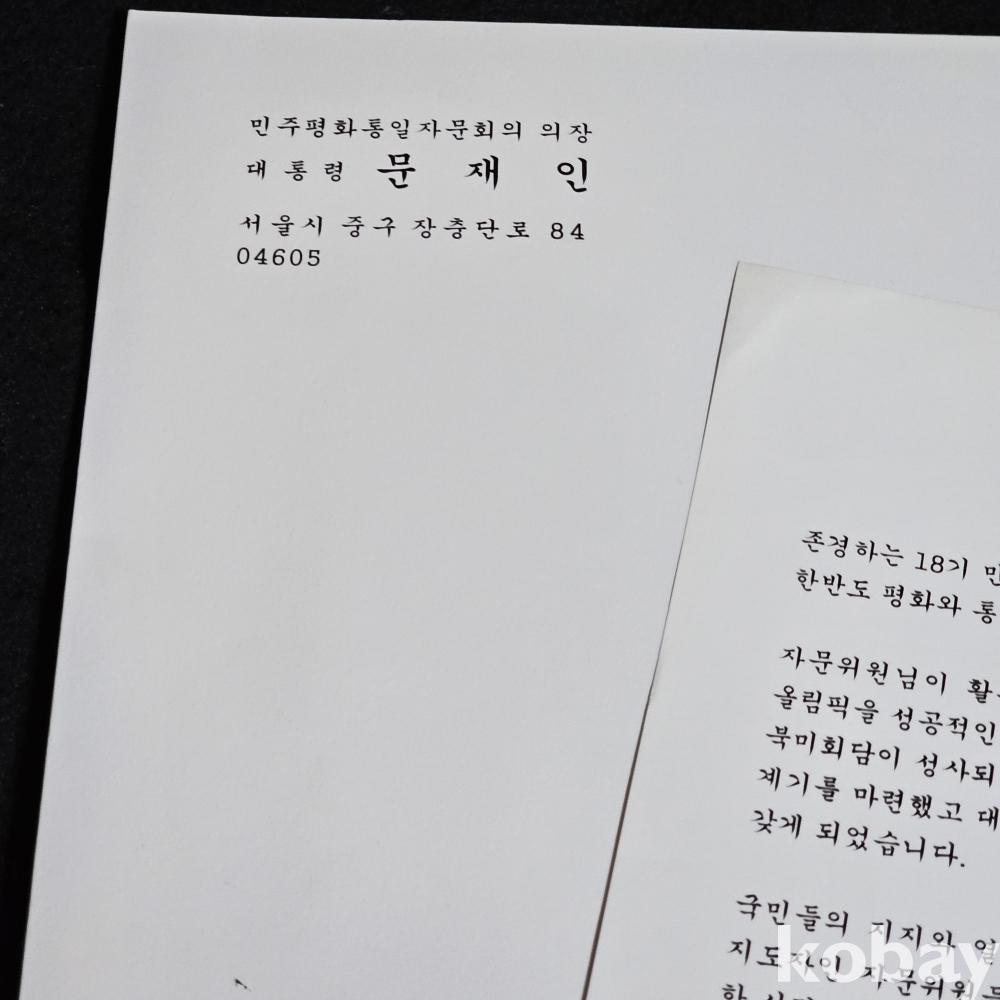 민주평화통일자문회의 의장
대통령 문재인
서울시 중구 장충단로 84
04605
존경하는 18기
한반도 평화와 통
자문위원님이
올림픽을 성공적인
북미회담이 성사되
계기를 마련했고 대
갖게 되었습니다.
국민들의 지지와
지도자인 자문위원
kobay